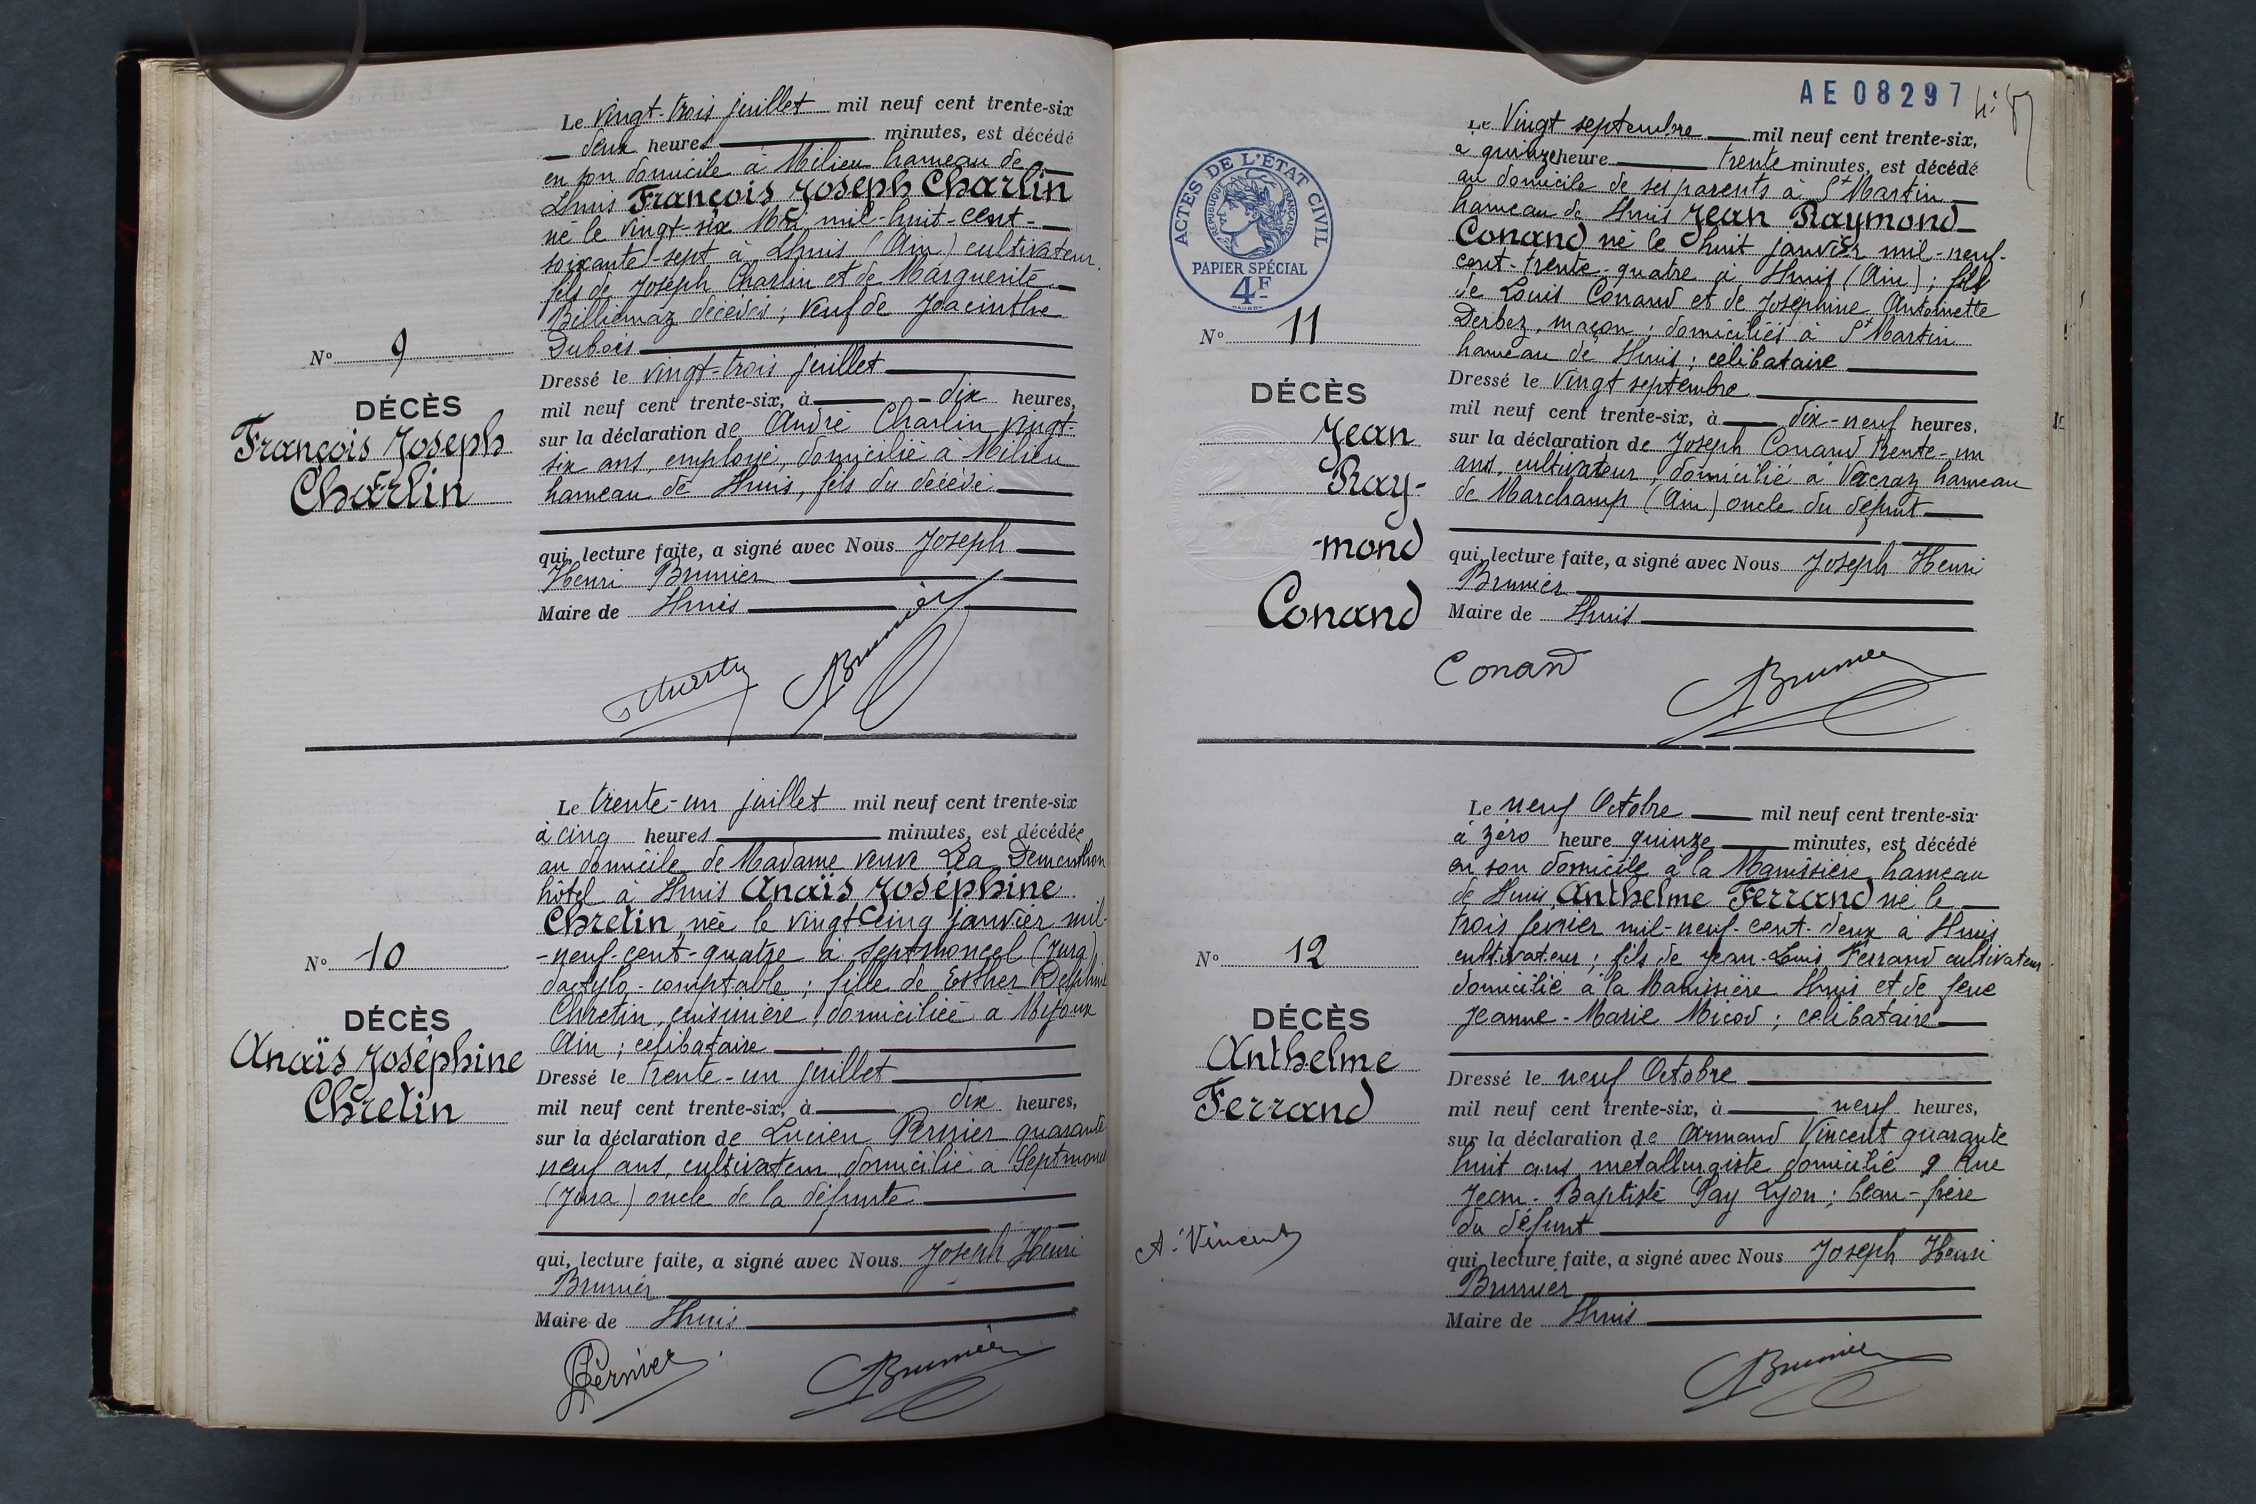 Le vingt-trois juillet mil neuf cent trente-six
deux heures minutes, est décédé
en son domicile à Milieu hameau de
Lhuis François Joseph Charlin
né le vingt-six Mai mil-huit-cent-
soixante-sept à Lhuis (Ain) cultivateur
fils de Joseph Charlin et de Marguerite
Billiemaz décédés ; veuf de Joacinthe
Dubois
N° 9
DÉCÈS
François Joseph
Charlin
Dressé le vingt-trois juillet
mil neuf cent trente-six, à dix heures,
sur la déclaration de André Charlin vingt-
six ans, employé, domicilié à Milieu
hameau de Lhuis, fils du décédé
qui, lecture faite, a signé avec Nous Joseph
Henri Brunier
Maire de Lhuis
Brunier
Le trente-un juillet mil neuf cent trente-six
à cinq heures minutes, est décédée
au domicile de Madame veuve Léa Dementhon
hôtel à Lhuis Anaïs Joséphine
Chretin née le vingt cinq janvier mil-
-neuf-cent-quatre à Septmoncel (Jura)
dactylo-comptable ; fille de Esther Delphine
Chretin, cuisinière, domiciliée à Mijoux
Ain ; celibataire
N° 10
DÉCÈS
Anaïs Joséphine
Chretin
Dressé le trente-un juillet
mil neuf cent trente-six, à dix heures,
sur la déclaration de Lucien Pernier quarante
neuf ans, cultivateur domicilié à Septmoncel
(Jura) oncle de la défunte
qui, lecture faite, a signé avec Nous Joseph Henri
Brunier
Maire de Lhuis
Pernier
Brunier
AE 08297
ACTES DE L'ÉTAT CIVIL
RÉPUBLIQUE FRANÇAISE
PAPIER SPÉCIAL
4F
Le Vingt septembre mil neuf cent trente-six,
à quinze heure trente minutes, est décédé
au domicile de ses parents à St Martin
hameau de Lhuis Jean Raymond
Conand né le huit janvier mil-neuf-
cent-trente-quatre à Lhuis (Ain) ; fils
de Louis Conand et de Josephine Antoinette
Derbez, maçon ; domiciliés à St Martin
hameau de Lhuis ; celibataire
N° 11
DÉCÈS
Jean
Ray-
-mond
Conand
Dressé le Vingt septembre
mil neuf cent trente-six, à dix-neuf heures,
sur la déclaration de Joseph Conand trente-un
ans, cultivateur, domicilié à Vacraz hameau
de Marchamp (Ain) oncle du défunt
qui, lecture faite, a signé avec Nous Joseph Henri
Brunier
Maire de Lhuis
Conand
Brunier
Le neuf Octobre mil neuf cent trente-six
à zéro heure quinze minutes, est décédé
en son domicile à la Manissière hameau
de Lhuis Anthelme Ferrand né le
trois février mil-neuf-cent-deux à Lhuis
cultivateur ; fils de Jean-Louis Ferrand cultivateur
domicilié à la Manissière Lhuis et de feue
Jeanne-Marie Micod ; celibataire
N° 12
DÉCÈS
Anthelme
Ferrand
Dressé le neuf Octobre
mil neuf cent trente-six, à neuf heures,
sur la déclaration de Armand Vincent quarante
huit ans métallurgiste domicilié 9 Rue
Jean-Baptiste Say Lyon ; beau-frère
du défunt
qui, lecture faite, a signé avec Nous Joseph Henri
Brunier
Maire de Lhuis
A. Vincent
Brunier